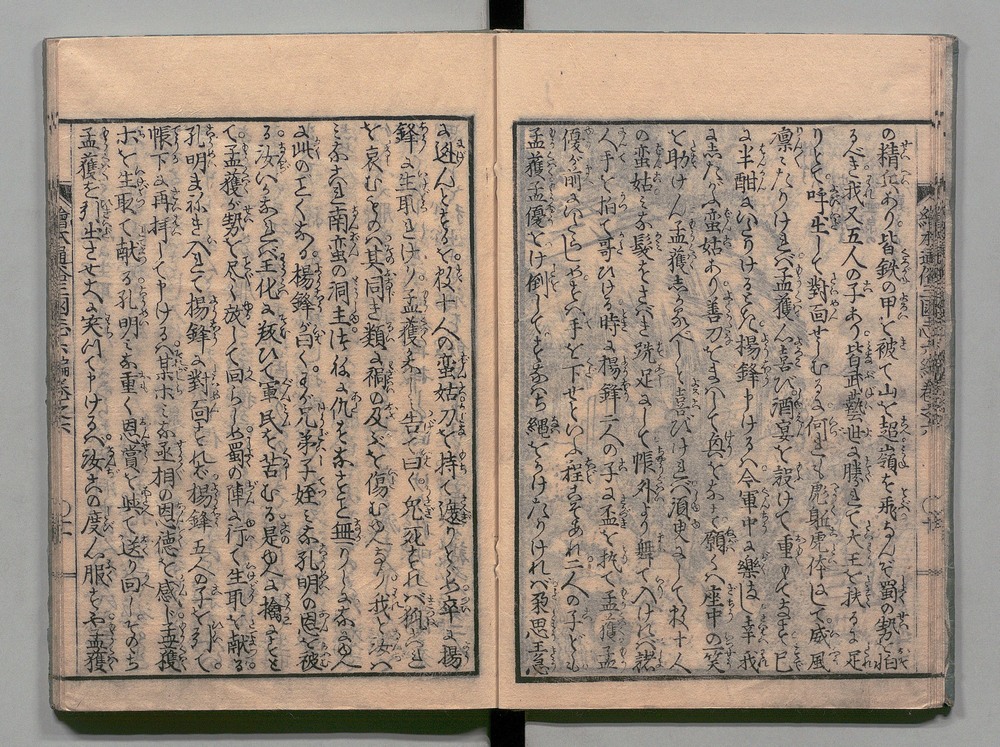 の精兵あり皆鉄の甲を被て山を超嶺を飛るなんぞ蜀の勢を怕
るべき我又五人の子あり皆武藝世に勝れて大王を扶るに足
りとて呼出して對面せしむるに何れも彪軀虎体にて威風
凛々たりければ孟獲心に喜び酒宴を設けて重くもてなす已
に半酣におよびける時楊鋒申けるハ今軍中に樂なし幸我
にしたがふ蛮姑あり善刀をまハして興をなす願くハ座中の一笑
を助けん孟獲しかるべしと喜びければ須臾にして数十人
の蛮姑ミな髪をさバき跣足にして帳外より舞て入ければ諸
人手を拍て哥ひける時に楊鋒二人の子に盃を執て孟獲孟
優が前にいたらしめを手を下せといふ程こそあれ二人の子ども
孟獲孟優をけ倒してすなハち縄をかけたりければ朶思王急
に逃んとするを数十人の蛮姑刀を持て遮りとゞめ卒に楊
鋒に生取れけり孟獲 告て曰く兎死すれば狐これ
を哀むものハ其同き類に禍の及ぶを傷むゆへなり我と汝ハ
ミなこれ南蛮の洞主にて往日に仇をなすこと無りしになにゆへ
に此のごとくなる楊鋒が曰くわが兄弟子姪ミな孔明の恩を被
る汝ハ王化に叛ひて軍民を苦むる是ゆへに擒にすと
て孟獲が勢を尽く放して回らしめ蜀の陣に行て生取を献る
孔明よび入れて楊鋒に對面すれば楊鋒五人の子を引て
帳下に再拝して申けるハ某ホミな丞相の恩徳を感じ孟獲
ホを生取て献る孔明ミな重く恩賞を與て送り回しそのち
孟獲を引出させ大に笑ひて申けるハ汝この度心服すや孟獲
繪本通俗三國志六編巻之六
繪本通俗三國志六編巻之六